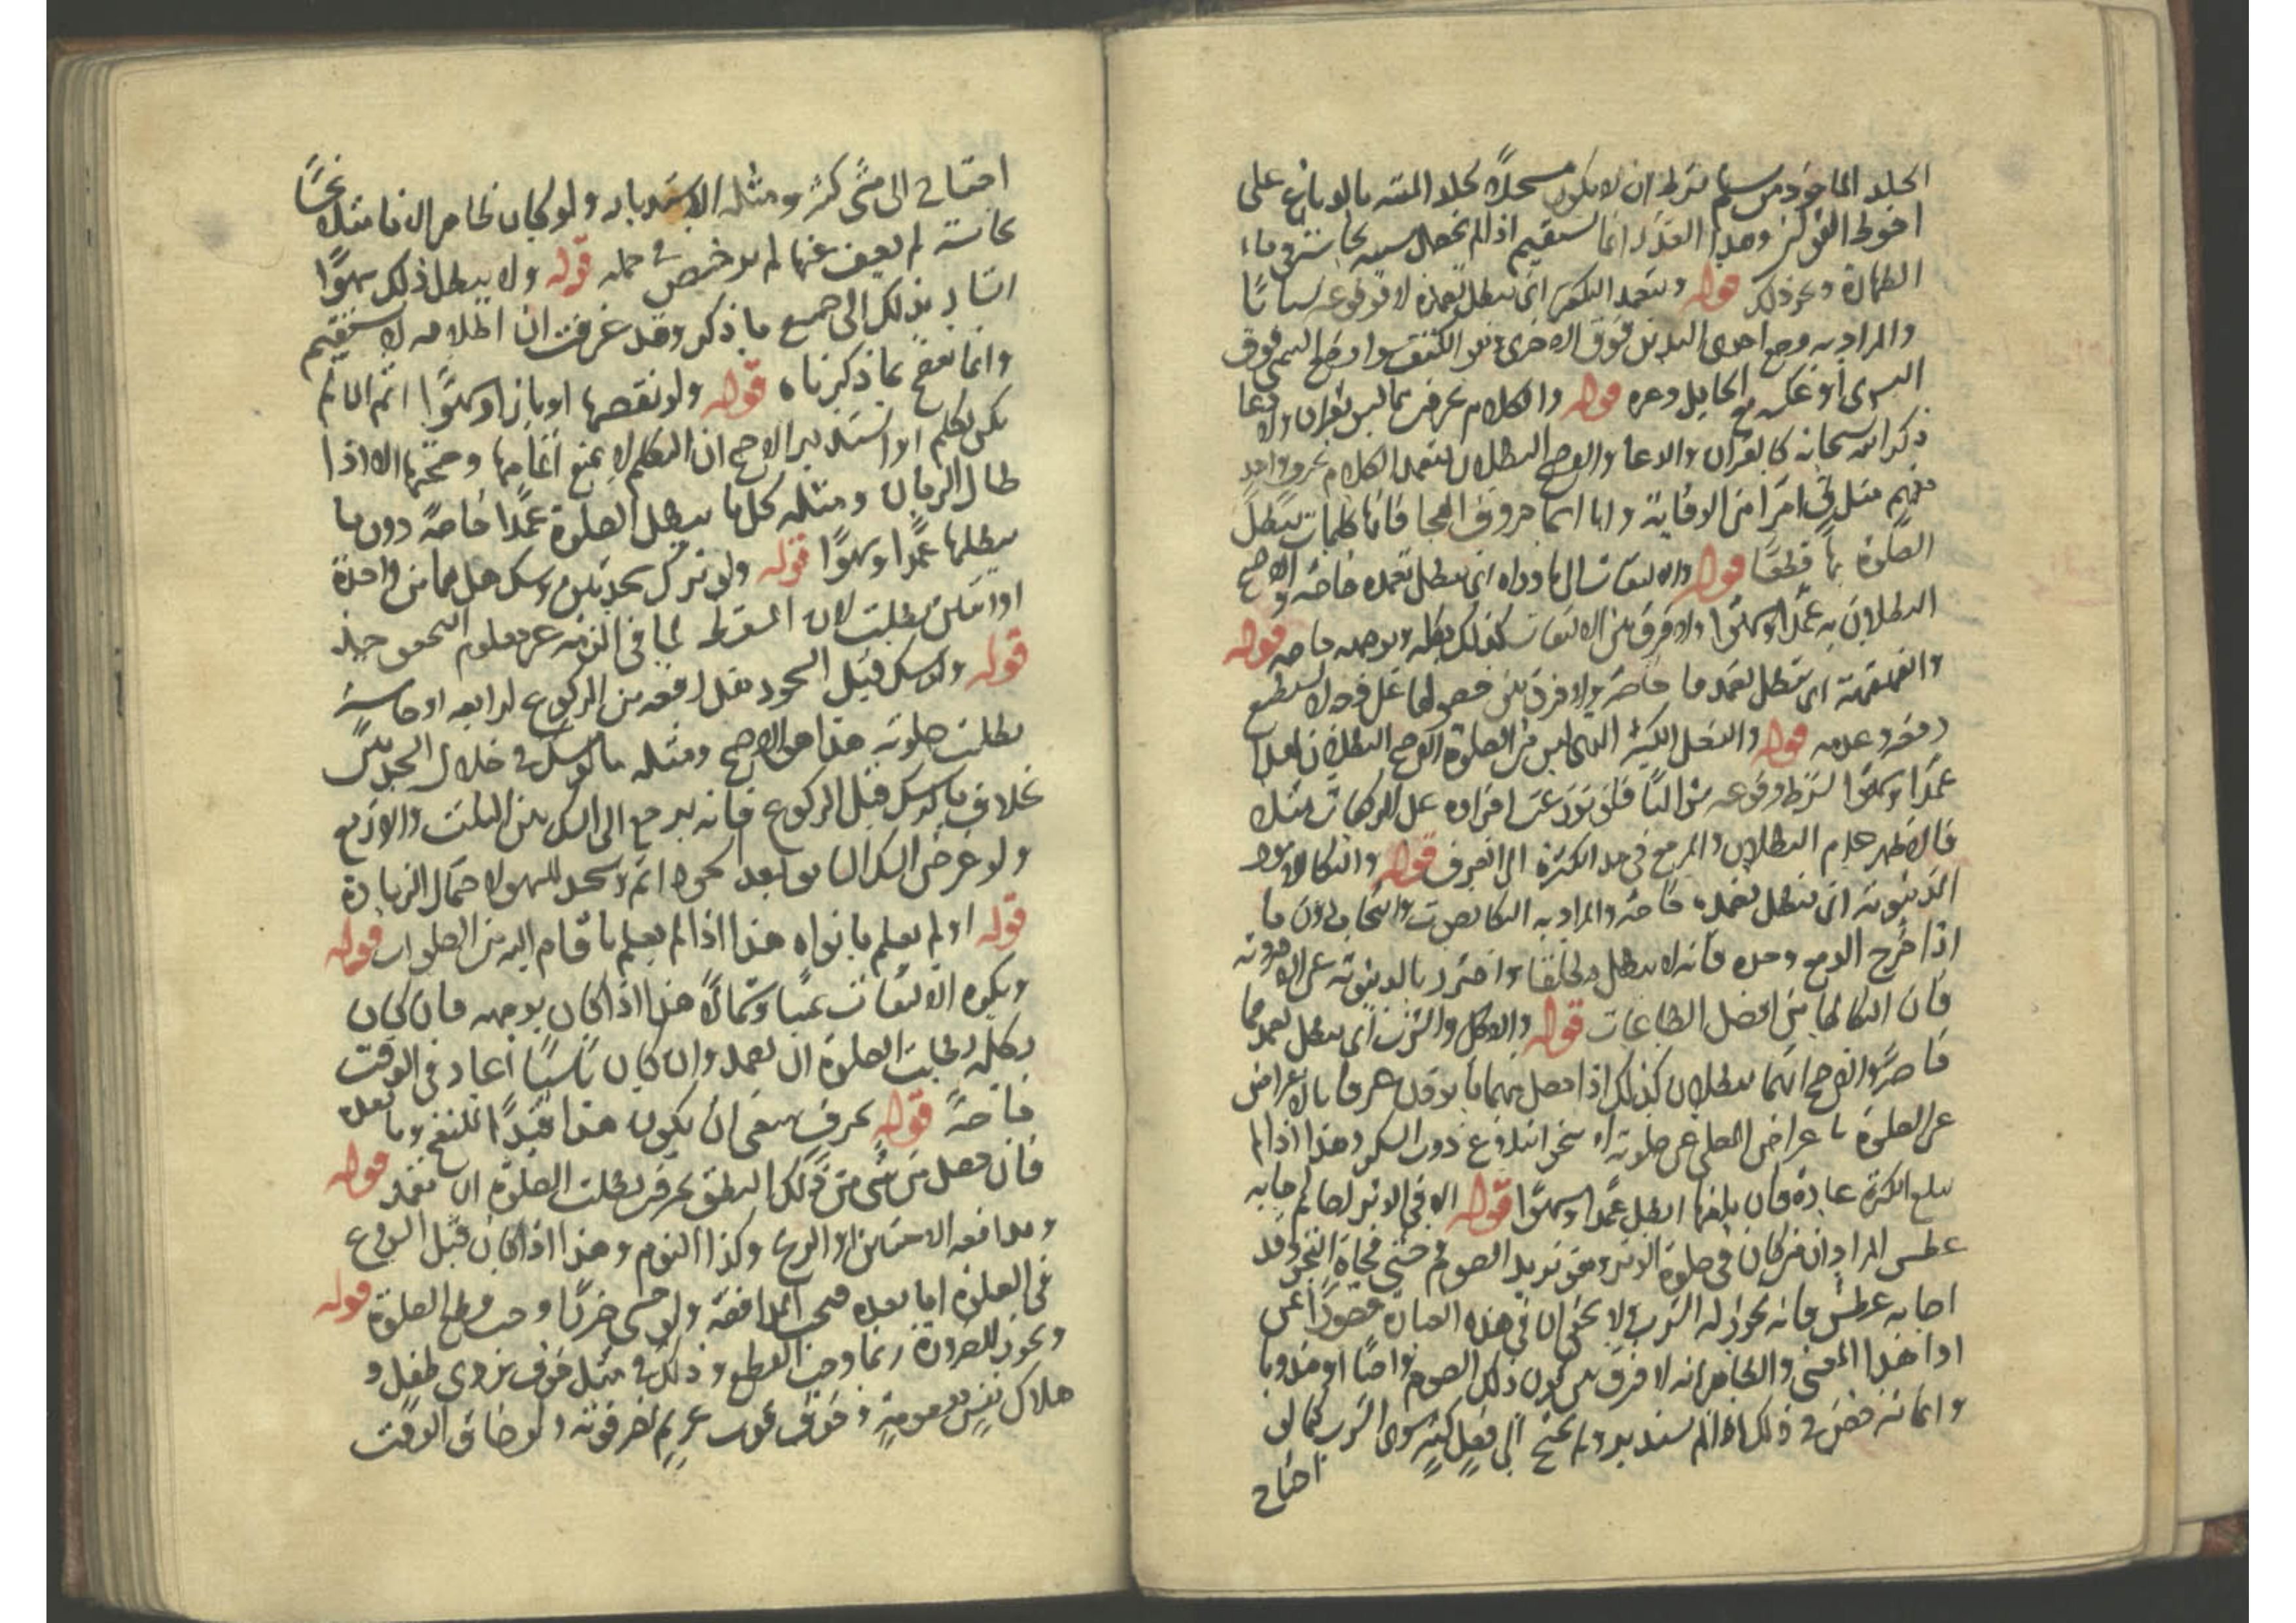 الجلد الماخوذ من مسلم بشرط ان لا يكون مستحلا لجلد الميتة بالدباغ على
الطهارة ونحو ذلك قوله وتعمد التكفير اى يبطل تعمده لا وقوعه نسيانا
والمراد به وضع احدى اليدين فوق الاخرى سوا وضع اليمنى فوق
اليسرى او عكس مع الحايل وعدمه قوله والكلام بحرفين مما ليس بقران ولا دعا
ذكر الله سبحانه كالقران والدعا والاصح البطلان بتعمد الكلام بحرف واحد
مفهم مثل ق امرا من الوقاية واما اسما حروف الهجا فانها كلمات تبطل
الصلوة بها قطعا قوله والالتفات الى ما وراه اى يبطل تعمده خاصة والاصح
البطلان به عمدا وسهوا ولا فرق بين الالتفات بكله وبوجهه خاصة قوله
والقهقهة اى يبطل تعمدها خاصة ولا فرق بين حصولها على وجه لا يستطيع
دفعه وعدمه قوله والفعل الكثير الذى ليس من الصلوة الاصح البطلان
عمدا وسهوا بشرط وقوعه متواليا فلو توزعت افراده على الركعات مثلا
فالاظهر عدم البطلان والمرجع فى حد الكثرة الى العرف قوله والبكا لامور
الدنيوية اى يبطل تعمده خاصة والمراد به البكا بصوت وانتحاب دون ما
اذا خرج الدمع وحده فانه لا يبطل مطلقا واحترز بالدنيوية عن الاخروية
فان البكا لها من افضل الطاعات قوله والاكل والشرب اى يبطل تعمدهما
خاصة والاصح انهما يبطلان كذلك اذا حصل بهما ما يوذن عرفا بالاعراض
عن الصلوة باعراض المصلى عن صلوته لا بنحو ابتلاع ذوب السكر وهذا اذا لم
يبلغ الكثرة عادة فان بلغها ابطل عمدا وسهوا قوله الا فى الوتر لصايم اصابه
عطش المراد ان من كان فى صلوة الوتر وهو يريد الصوم وخشى فجاة الفجر وقد
اصابه عطش فانه يجوز له الشرب ولا يخفى ان فى هذه العبارة قصورا عن
ادا هذا المعنى والظاهر انه لا فرق بين كون ذلك الصوم واجبا او مندوبا
وانما ترخص فى ذلك اذا لم يستدبر ولم يحتج الى فعل كثير سوى الشرب كما لو
احتاج
احتاج الى مشى كثير ومثله الاستدبار ولو كان ظاهر الانا مثلا نجسا
نجاسة لم يعف عنها لم يرخص فى حمله قوله ولا يبطل ذلك سهوا
اشار بذلك الى جميع ما ذكر وقد عرفت ان اطلاقه لا يستقيم
وانما يصح بما ذكرناه قوله ولو نقصها او زاد سهوا اتم ما لم
يكن تكلم او استدبر الاصح ان التكلم لا يمنع اتمامها وصحتها الا اذا
طال الزمان ومثله كل ما يبطل الصلوة عمدا خاصة دون ما
يبطلها عمدا وسهوا قوله ولو ترك سجدتين وشك هل هما من واحدة
او اثنتين بطلت لان المسقط لما فى الذمة غير معلوم التحقق حينئذ
قوله ولو شك قبل السجود هل رفعه من الركوع لرابعة او خامسة
بطلت صلوته هذا هو الاصح ومثله ما لو شك فى خلال السجدتين
بخلاف ما لو شك قبل الركوع فانه يرجع الى الشك بين الثلث والاربع
ولو عرض الشك السابق بعد السجود اتم وسجد للسهو لاحتمال الزيادة
قوله او لم يعلم ما نواه هذا اذا لم يعلم ما قام اليه من الصلوات قوله
ويكره الالتفات يمينا وشمالا هذا اذا كان بوجهه فان كان
بكله بطلت الصلوة ان تعمد وان كان ناسيا اعاد فى الوقت
خاصة قوله بحرف ينبغى ان يكون هذا قيدا للنفخ وما بعده
فان حصل من شى من ذلك النطق بحرفين بطلت الصلوة ان تعمد قوله
ومدافعة الاخبثين او الريح وكذا النوم وهذا اذا كان قبل الشروع
فى الصلوة اما بعده فتجب المدافعة ولو خشى ضررا وجب قطع الصلوة قوله
ويجوز للضرورة ربما وجب القطع وذلك فى مثل خوف تردى طفل و
هلاك نفس معصومة وخوف هرب غريم يضر فوته ولو ضاق الوقت